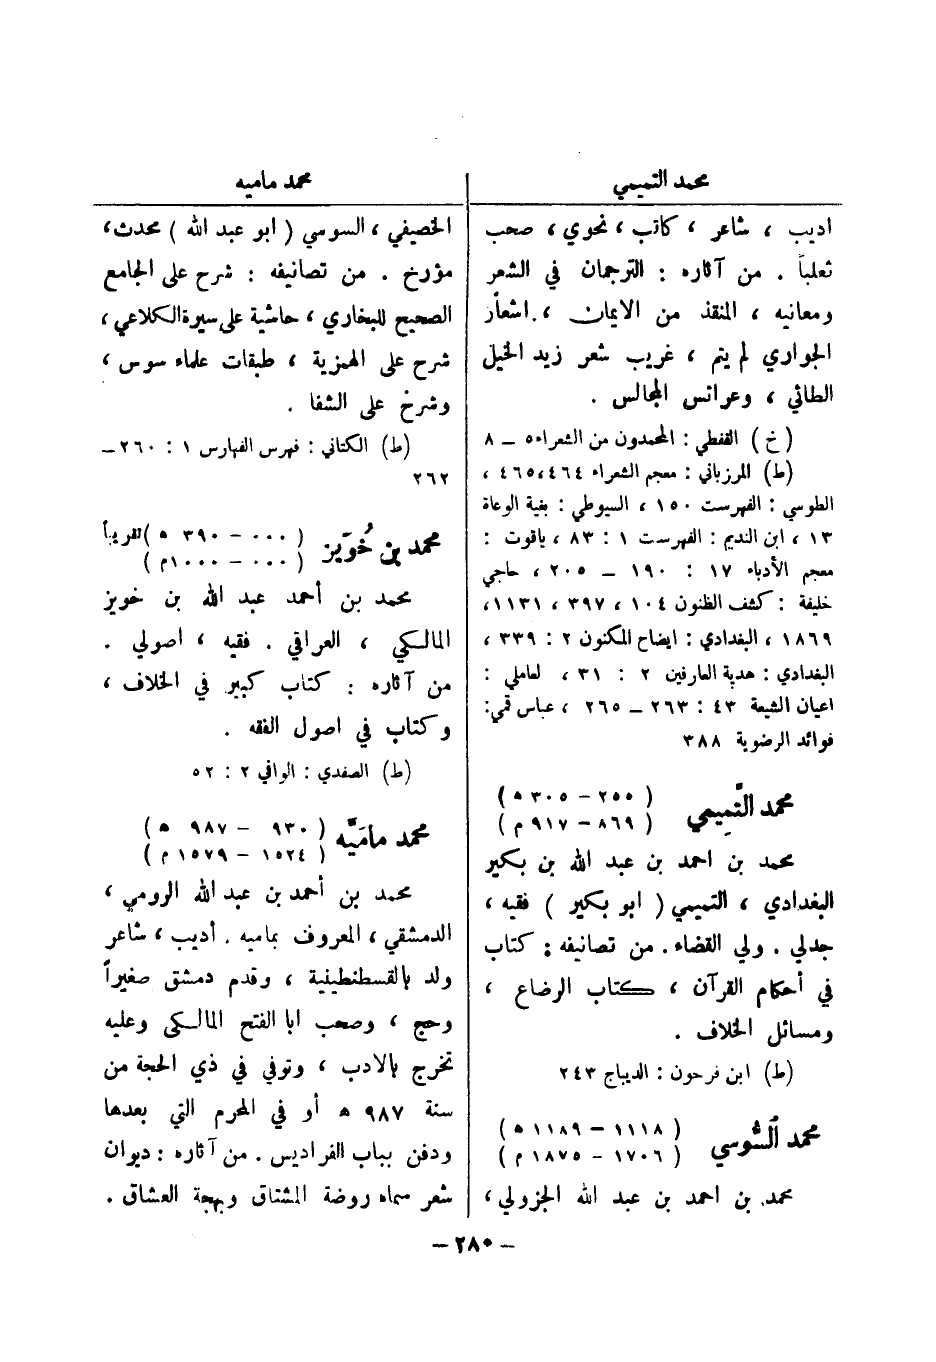 محمد التميمي
اديب ، شاعر ، كاتب ، نحوي ، صحب
ثعلباً . من آثاره : الترجمان في الشعر
ومعانيه ، المنقذ من الايمان ، اشعار
الجواري لم يتم ، غريب شعر زيد الخيل
الطائي ، وعرائس المجالس .
(خ) القفطي : المحمدون من الشعراء ٥ – ٨
(ط) المرزباني : معجم الشعراء ٤٦٤،٤٦٥ ،
الطوسي : الفهرست ١٥٠ ، السيوطي : بغية الوعاة
١٣ ، ابن النديم : الفهرست ١ : ٨٣ ، ياقوت :
معجم الأدباء ١٧ : ١٩٠ – ٢٠٥ ، حاجي
خليفة : كشف الظنون ١٠٤ ، ٣٩٧ ، ١١٣١،
١٨٦٩ ، البغدادي : ايضاح المكنون ٢ : ٣٣٩ ،
البغدادي : هدية العارفين ٢ : ٣١ ، لعاملي :
اعيان الشيعة ٤٣ : ٢٦٣ – ٢٦٥ ، عباس قمي:
فوائد الرضوية ٣٨٨
محمد التَّميمي ( ٢٥٠ – ٣٠٥ ه )
( ٨٦٩ – ٩١٧ م )
محمد بن احمد بن عبد الله بن بكير
البغدادي ، التميمي ( ابو بكير ) فقيه ،
جدلي . ولي القضاء . من تصانيفه : كتاب
في أحكام القرآن ، كتاب الرضاع ،
ومسائل الخلاف .
(ط) ابن فرحون : الديباج ٢٤٣
محمد السُّوسي ( ١١١٨ – ١١٨٩ ه )
( ١٧٠٦ – ١٨٧٥ م )
محمد بن احمد بن عبد الله الجزولي ،
محمد ماميه
الخصيفي ، السوسي ( ابو عبد الله ) محدث ،
مؤرخ . من تصانيفه : شرح على الجامع
الصحيح للبخاري ، حاشية على سيرة الكلاعي ،
شرح على الهمزية ، طبقات علماء سوس ،
وشرح على الشفا .
(ط) الكتاني : فهرس الفهارس ١ : ٢٦٠ –
٢٦٢
محمد بن خُوَيز ( ٠٠٠ – ٣٩٠ ه ) تقريباً
( ٠٠٠ – ١٠٠٠م )
محمد بن أحمد عبد الله بن خويز
المالكي ، العراقي . فقيه ، اصولي .
من آثاره : كتاب كبير في الخلاف ،
وكتاب في اصول الفقه .
(ط) الصفدي : الوافي ٢ : ٥٢
محمد ماميَّه ( ٩٣٠ – ٩٨٧ ه )
( ١٥٢٤ – ١٥٧٩ م )
محمد بن أحمد بن عبد الله الرومي ،
الدمشقي ، المعروف بماميه . أديب ، شاعر
ولد بالقسطنطينية ، وقدم دمشق صغيراً
وحج ، وصحب ابا الفتح المالكي وعليه
تخرج بالادب ، وتوفي في ذي الحجة من
سنة ٩٨٧ ه أو في المحرم التي بعدها
ودفن بباب الفراديس . من آثاره : ديوان
شعر سماه روضة المشتاق وبهجة العشاق .
– ٢٨٠ –